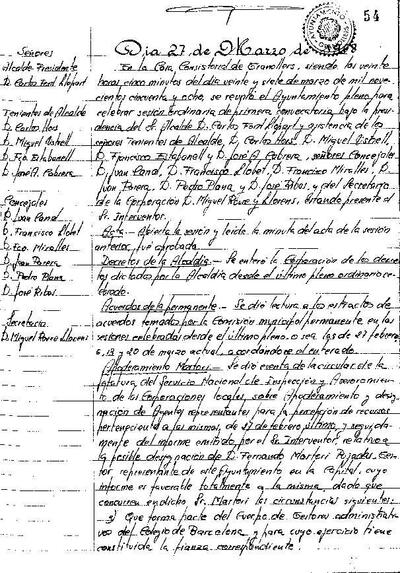 54
Dia 27 de Marzo de 1958
Señores
Alcalde Presidente
D. Carlos Font Llopart
Tenientes de Alcalde
D. Carlos
D. Miguel
D. Fco Estabanell
D. José A. Cabrera
Concejales
D. Juan Canal
D. Francisco Llobet
D. Fco. Miralles
D. Juan Parera
D. Pedro Plana
D. José Ribas
Secretario
D. Miguel Llorens
En la Casa Consistorial de Granollers, siendo las veinte
horas cinco minutos del dia veinte y siete de marzo de mil nove-
cientos cincuenta y ocho, se reunió el Ayuntamiento pleno para
celebrar sesión ordinaria de primera convocatoria bajo la presi-
dencia del Sr. Alcalde D. Carlos Font Llopart y asistencia de los
señores Tenientes de Alcalde, D. Carlos D. Miguel
D. Francisco Estabanell y D. José A. Cabrera, señores Concejales
D. Juan Canal, D. Francisco Llobet, D. Francisco Miralles, D.
Juan Parera, D. Pedro Plana y D. José Ribas, y del Secretario
de la Corporación D. Miguel y Llorens, estando presente el
Sr. Interventor.
Acta.- Abierta la sesión y leida la minuta del acta de la sesión
anterior, fué aprobada.
Decretos de la Alcaldia.- Se enteró la Corporación de los decre-
tos dictados por la Alcaldia desde el último pleno ordinario ce-
lebrado.
Acuerdos de la permanente.- Se dió lectura a los extractos de
acuerdos tomados por la Comisión municipal permanente en las
sesiones celebradas desde el último pleno. o sea las de 27 febrero
6, 13 y 20 de marzo actual, acordandose el enterado.
Apoderamiento Martori.- Se dió cuenta de la circular de la
Jefatura del Servicio Nacional de Inspección y Asesoramien-
to de las Corporaciones locales, sobre Apoderamiento y desig-
nación de Agentes representantes para la percepción de recursos
pertenecientes a las mismas, de 27 de febrero último, y seguida-
mente del informe emitido por el Sr. Interventor, relativo a
la posible designación de D. Fernando Martori Pujadas, Ges-
tor representante de este Ayuntamiento en la Capital, cuyo
informe es favorable totalmente a la misma dado que
concurren en dicho Sr. Martori las circunstancias siguientes:
Que forma parte del Cuerpo de Gestores administrati-
vos del Colegio de Barcelona y para cuyo ejercicio tiene
constituida la fianza correspondiente.